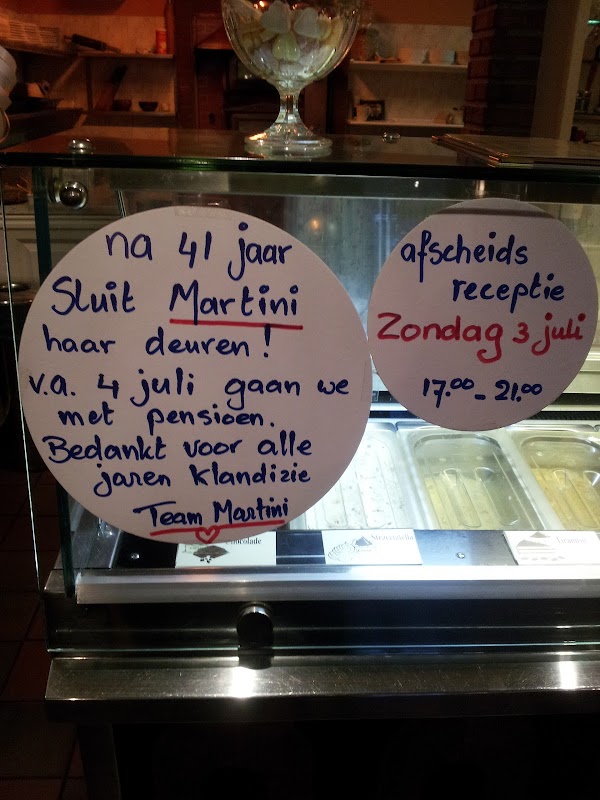 na 41 jaar
Sluit Martini
haar deuren!
v.a. 4 juli gaan we
met pensioen.
Bedankt voor alle
jaren klandizie
Team Martini
afscheids
receptie
Zondag 3 juli
17.00 - 21.00
Chocolade
Stracciatella
Tiramisu